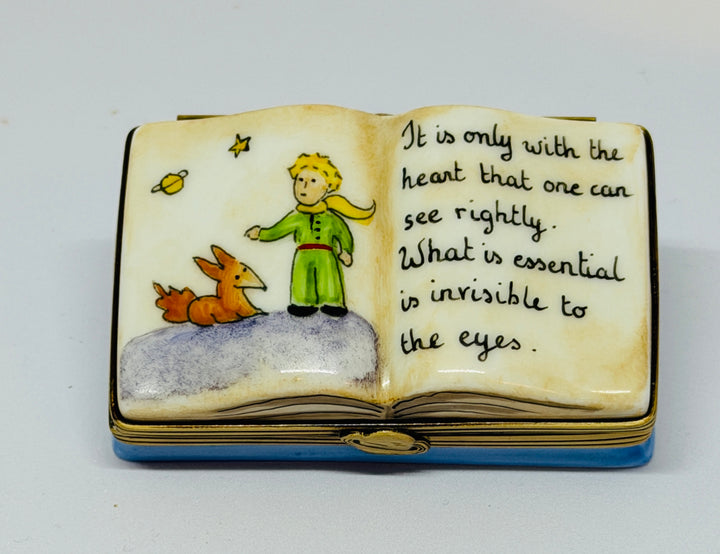 It is only with the
heart that one can
see rightly.
What is essential
is invisible to
the eyes.